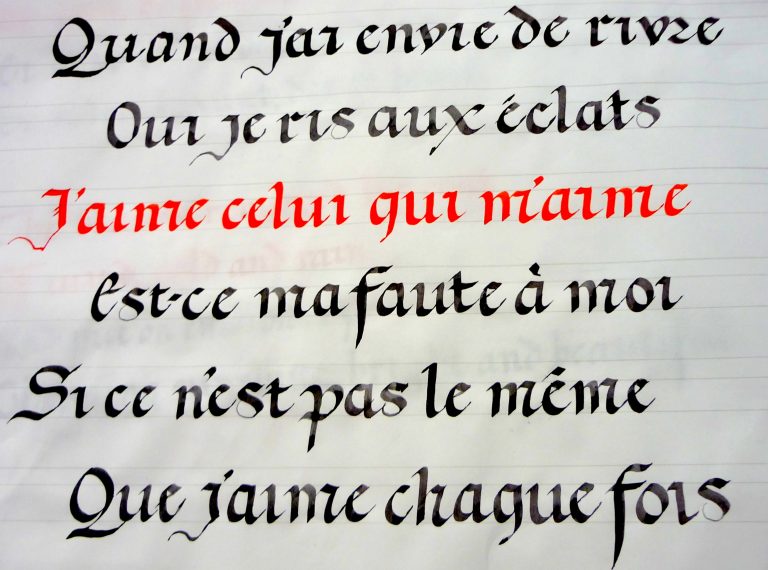 Quand j'ai envie de rivre
Oui je ris aux éclats
J'aime celui qui m'aime
Est-ce ma faute à moi
Si ce n'est pas le même
Que j'aime chaque fois